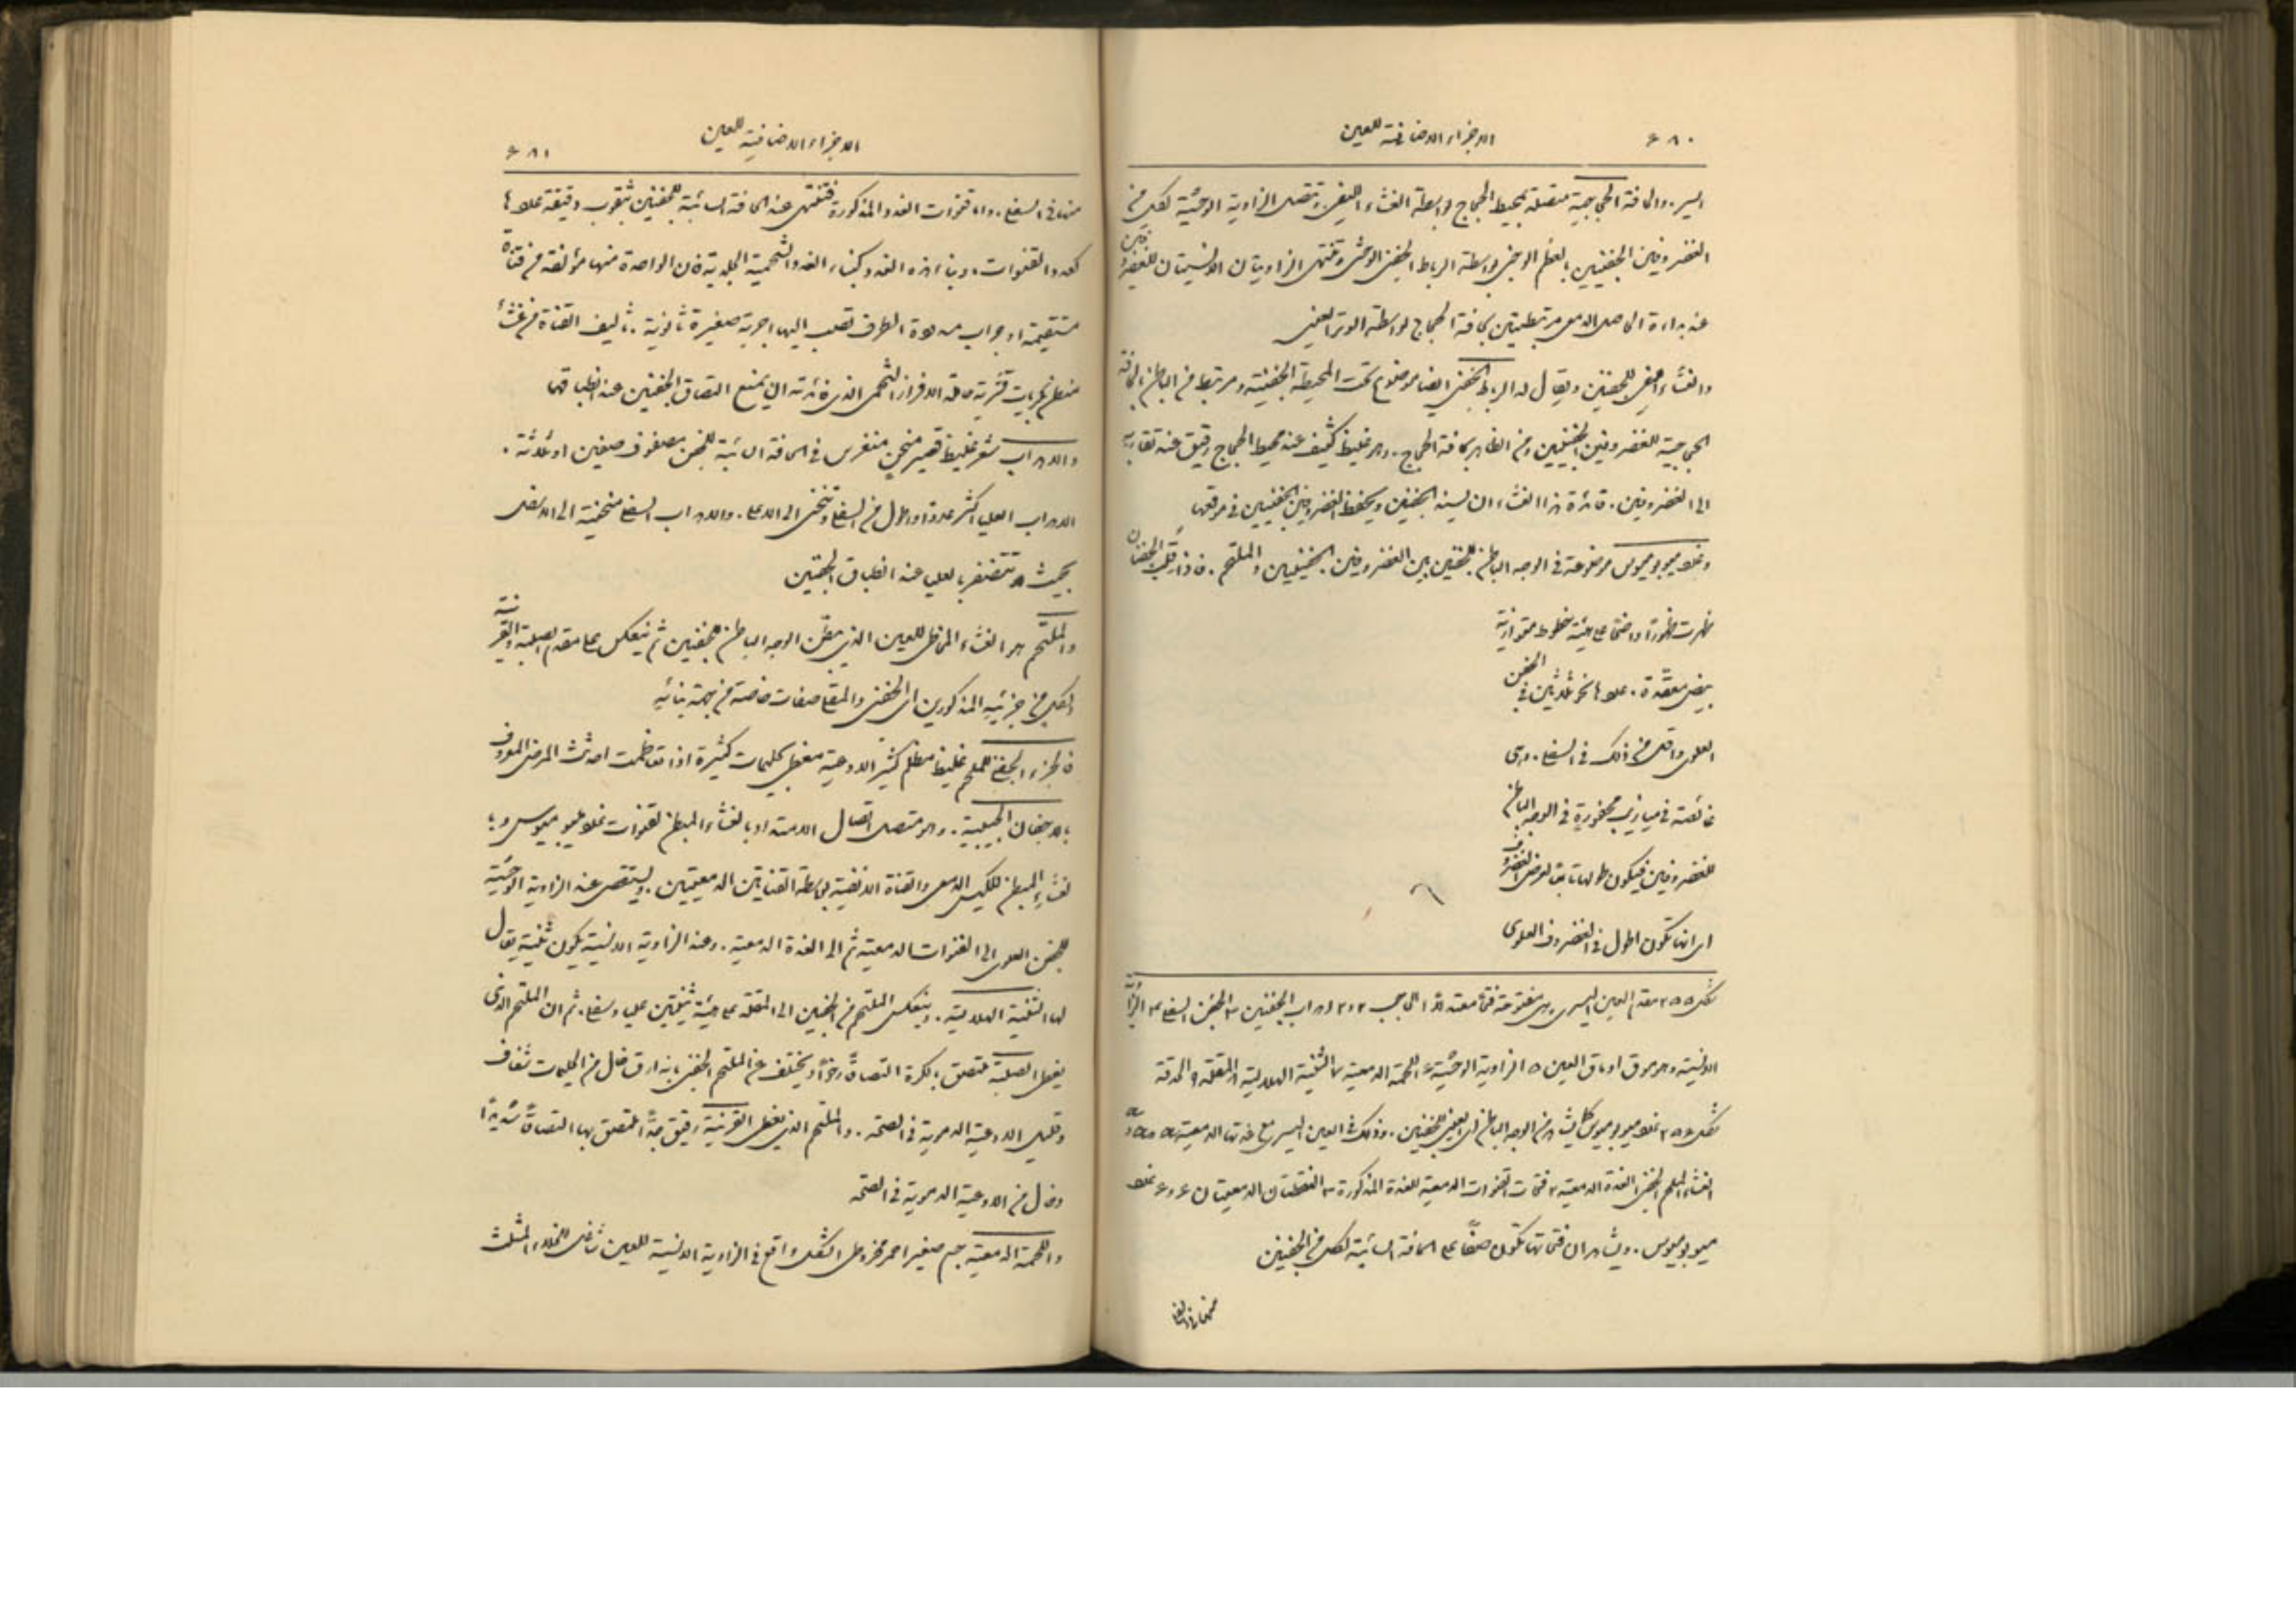 ٦٨٠ الاجزاء الاضافية للعين
اليسر. والحافة الحجاجية متصلة بمحيط الحجاج بواسطة الغشاء الليفي وتتصل الزاوية الوحشية لكل من
الغضروفين الجفنيين بالعظم الوجني بواسطة الرباط الجفني الوحشي وتنتهي الزاويتان الانسيتان للغضروفين
عند بداءة الحاصل الدمعي مرتبطتين بحافة الحجاج بواسطة الوتر العيني
والغشاء الليفي للجفنين ويقال له الرباط الجفني ايضا موضوع تحت المحيطة الجفنية ومرتبط من الباطن بالحافة
الحجاجية للغضروفين الجفنيين ومن الظاهر بحافة الحجاج. وهو غليظ كثيف عند محيط الحجاج رقيق عند تقاربه
الى الغضروفين. فائدة هذا الغشاء ان يسند الجفنين ويحفظ الغضروفين الجفنيين في موقعهما
وغدد ميبوميوس موضوعة في الوجه الباطن للجفنين بين الغضروفين الجفنيين والملتحم. فاذا قلب الجفنان
ظهرت ظهورًا واضحًا على هيئة خطوط متوازية
بيض معقدة. عددها نحو ثلاثين في الجفن
العلوي واقل من ذلك في السفلي. وهي
غائصة في ميازيب محفورة في الوجه الباطن
للغضروفين فيكون طولها تابعًا لعرض الغضروف
اي انها تكون اطول في الغضروف العلوي
شكل ٢٥٥ مقدم العين اليسرى وهي مفتوحة فتحًا معتدلًا ١ الحاجب ٢ و٢ اهداب الجفنين ٣ الجفن السفلي ٤ الزاوية
الانسية وهو موق او ماق العين ٥ الزاوية الوحشية ٦ اللحمة الدمعية ٧ الثنية الهلالية ٨ المقلة ٩ الحدقة
شكل ٢٥٦ غدد ميبوميوس كما يشاهد من الوجه الباطن اي العيني للجفنين. وذلك في العين اليسرى مع غدتها الدمعية
الغشاء الملتحم الجفني الغدة الدمعية ٢ فتحات القنوات الدمعية للغدة المذكورة ٣ النقطتان الدمعيتان ٦ و٦ غدد
ميبوميوس. ويشاهد ان فتحاتها تكون صفًا على الحافة السائبة لكل من الجفنين
منها في السفلي
الاجزاء الاضافية للعين ٦٨١
منها في السفلي. واما قنوات الغدد المذكورة فتنتهي عند الحافة السائبة للجفنين بثقوب دقيقة عددها
كعدد القنوات. وبناء هذه الغدد كبناء الغدد الشحمية الجلدية فان الواحدة منها مؤلفة من قناة
مستقيمة او جراب مسدودة الطرف تصب اليها اجربة صغيرة ثانوية. تاليف القناة من غشاء
مبطن بحريبات قشرية مادة الافراز الشحمي الذي فائدته ان يمنع التصاق الجفنين عند انطباقهما
والاهداب شعر غليظ قصير منحن منغرس في الحافة السائبة للجفن مصفوف صفين او ثلاثة.
الاهداب العليا اكثر عددًا واطول من السفلى وتنحني الى الاعلى. والاهداب السفلى منحنية الى الاسفل
بحيث لا تتضفر بالعليا عند انطباق الجفنين
والملتحم هو الغشاء المخاطي للعين الذي يبطن الوجه الباطن للجفنين ثم ينعكس على مقدم الصلبة والقرنية
ولكل من جزئيه المذكورين اي الجفني والمقلي صفات خاصة من جهة بنائه
فالجزء الجفني للملتحم غليظ مظلم كثير الاوعية مغطى بحليمات كثيرة اذا تعاظمت احدثت المرض المعروف
بالاجفان الحبيبية. وهو متصل اتصال الامتداد بالغشاء المبطن لقنوات غدد ميبوميوس و
بالغشاء المبطن للكيس الدمعي والقناة الانفية بواسطة القناتين الدمعيتين. ويستقصى عند الزاوية الوحشية
للجفن العلوي الى القنوات الدمعية ثم الى الغدة الدمعية. وعند الزاوية الانسية يكون ثنية يقال
لها الثنية الهلالية. وينعكس الملتحم من الجفنين الى المقلة على هيئة ثنيتين عليا وسفلى. ثم ان الملتحم الذي
يغطي الصلبة يلتصق بالكرة التصاقًا رخوًا ويختلف عن الملتحم الجفني بانه ارق خال من الحليمات شفاف
وقليل الاوعية الدموية في الصحة. والملتحم الذي يغطي القرنية رقيق جدًا ملتصق بها التصاقًا شديدًا
وخال من الاوعية الدموية في الصحة
واللحمة الدمعية جسم صغير احمر مخروطي الشكل واقع في الزاوية الانسية للعين شاغل للخلاء المثلث